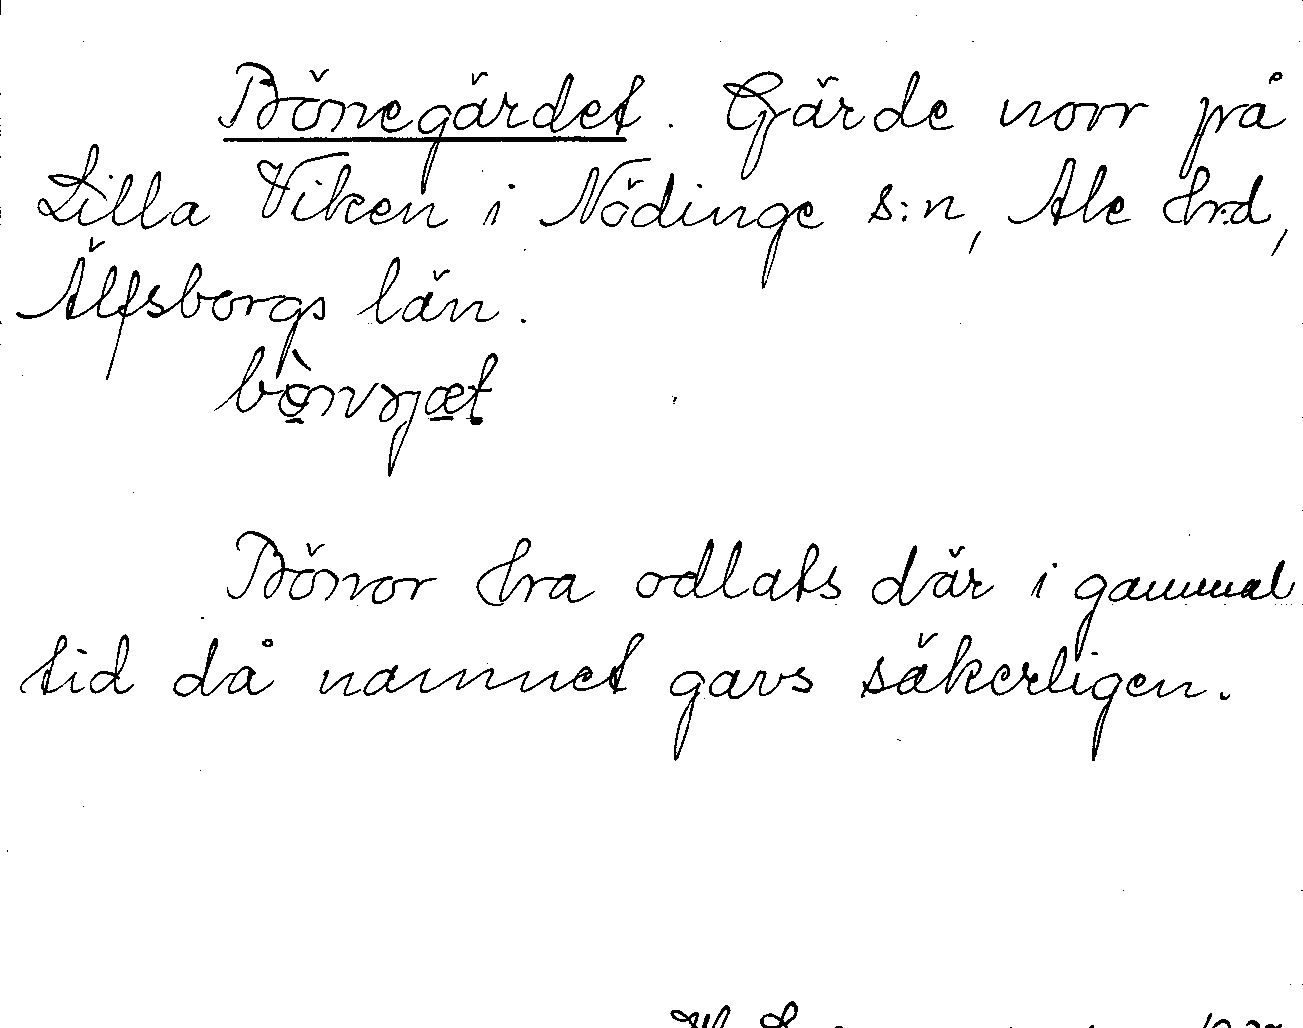 Bönegärdet. Gärde norr på
Lilla Viken i Nödinge s:n, Ale hrd,
Älfsborgs län.
Bönor ha odlats där i gammal
tid då namnet gavs säkerligen.